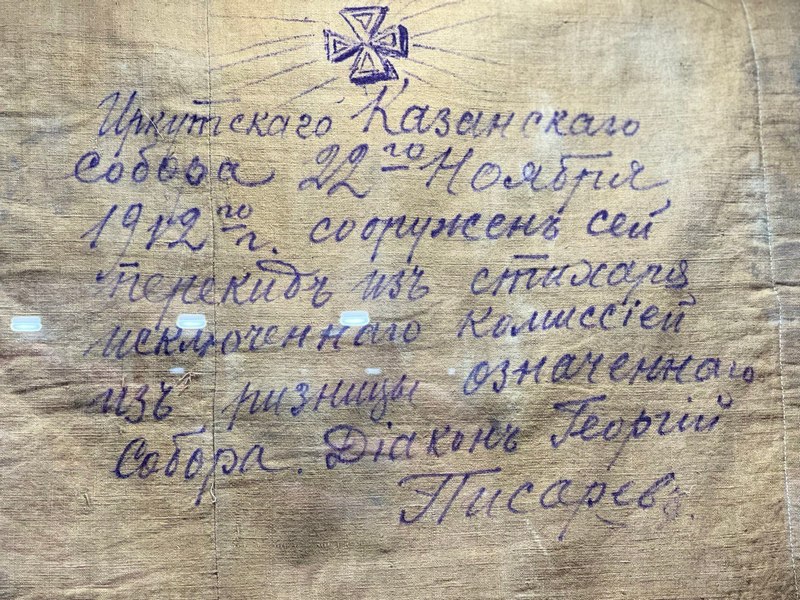 Иркутскаго Казанскаго
Собора 22го Ноября
1912го г. сооруженъ сей
перекидъ изъ стихаря
исключеннаго комиссіей
изъ ризницы означеннаго
Собора. Діаконъ Георгій
Писаревъ.